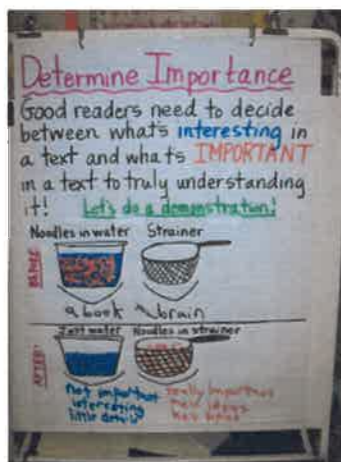 Determine Importance
Good readers need to decide
between what's interesting in
a text and what's IMPORTANT
in a text to truly understanding
it! Let's do a demonstration!
Noodles in water Strainer
BEFORE
a book brain
Just water Noodles in strainer
AFTER
not important really important
interesting main ideas
little details